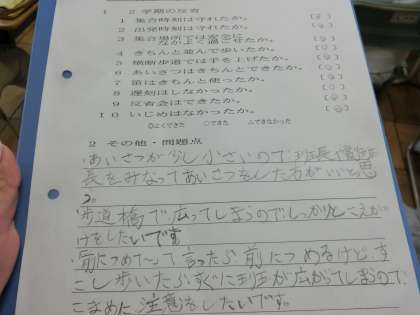 1 2学期の反省
1 集合時刻は守れたか。
2 出発時刻は守れたか。
3 集合場所では安全に
なかよく過ごせたか。
4 きちんと並んで歩いたか。
5 横断歩道では手を上げたか。
6 あいさつはきちんとできたか。
7 笛はきちんと使ったか。
8 遅刻はしなかったか。
9 反省会はできたか。
10 いじめはなかったか。
◎よくできた ○できた △できなかった
2 その他・問題点
・あいさつが少し小さいので班長、副班
長をみなってあいさつをした方がいいと思
う。
・歩道橋で広ってしまうのでしっかりこえか
けをしたいです
・前につめて〜って言ったら前につめるけど、す
こし歩いたらすぐにまたが広がってしまうので、
こまめに注意をしたいです。